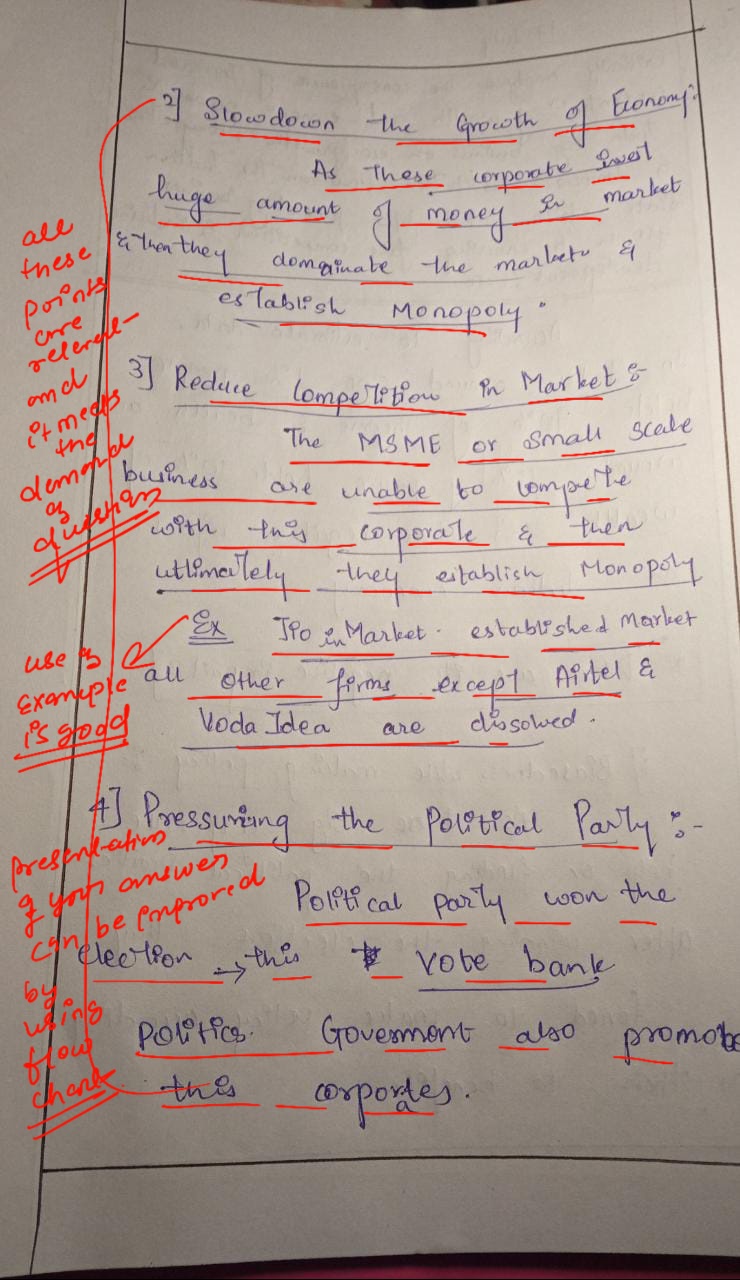 2] Slowdown the Growth of Economy:
As these corporate invest
huge amount of money in market
& then they domainate the market &
establish Monopoly.
3] Reduce Competition in Market :-
The MSME or Small Scale
business are unable to compete
with this corporate & then
utlimately they establish Monopoly
Ex Jio in Market. established Market
all other firms except Airtel &
Voda Idea are dissolved.
4] Pressurizing the Political Party :-
Political party won the
election → this vote bank
politics. Goverment also promote
this corporates.
all
these
points
are
relevent
and
it meets
the
demand
of
question
use of
example
is good
presentation
of your answer
can be improved
by
using
flow
chart